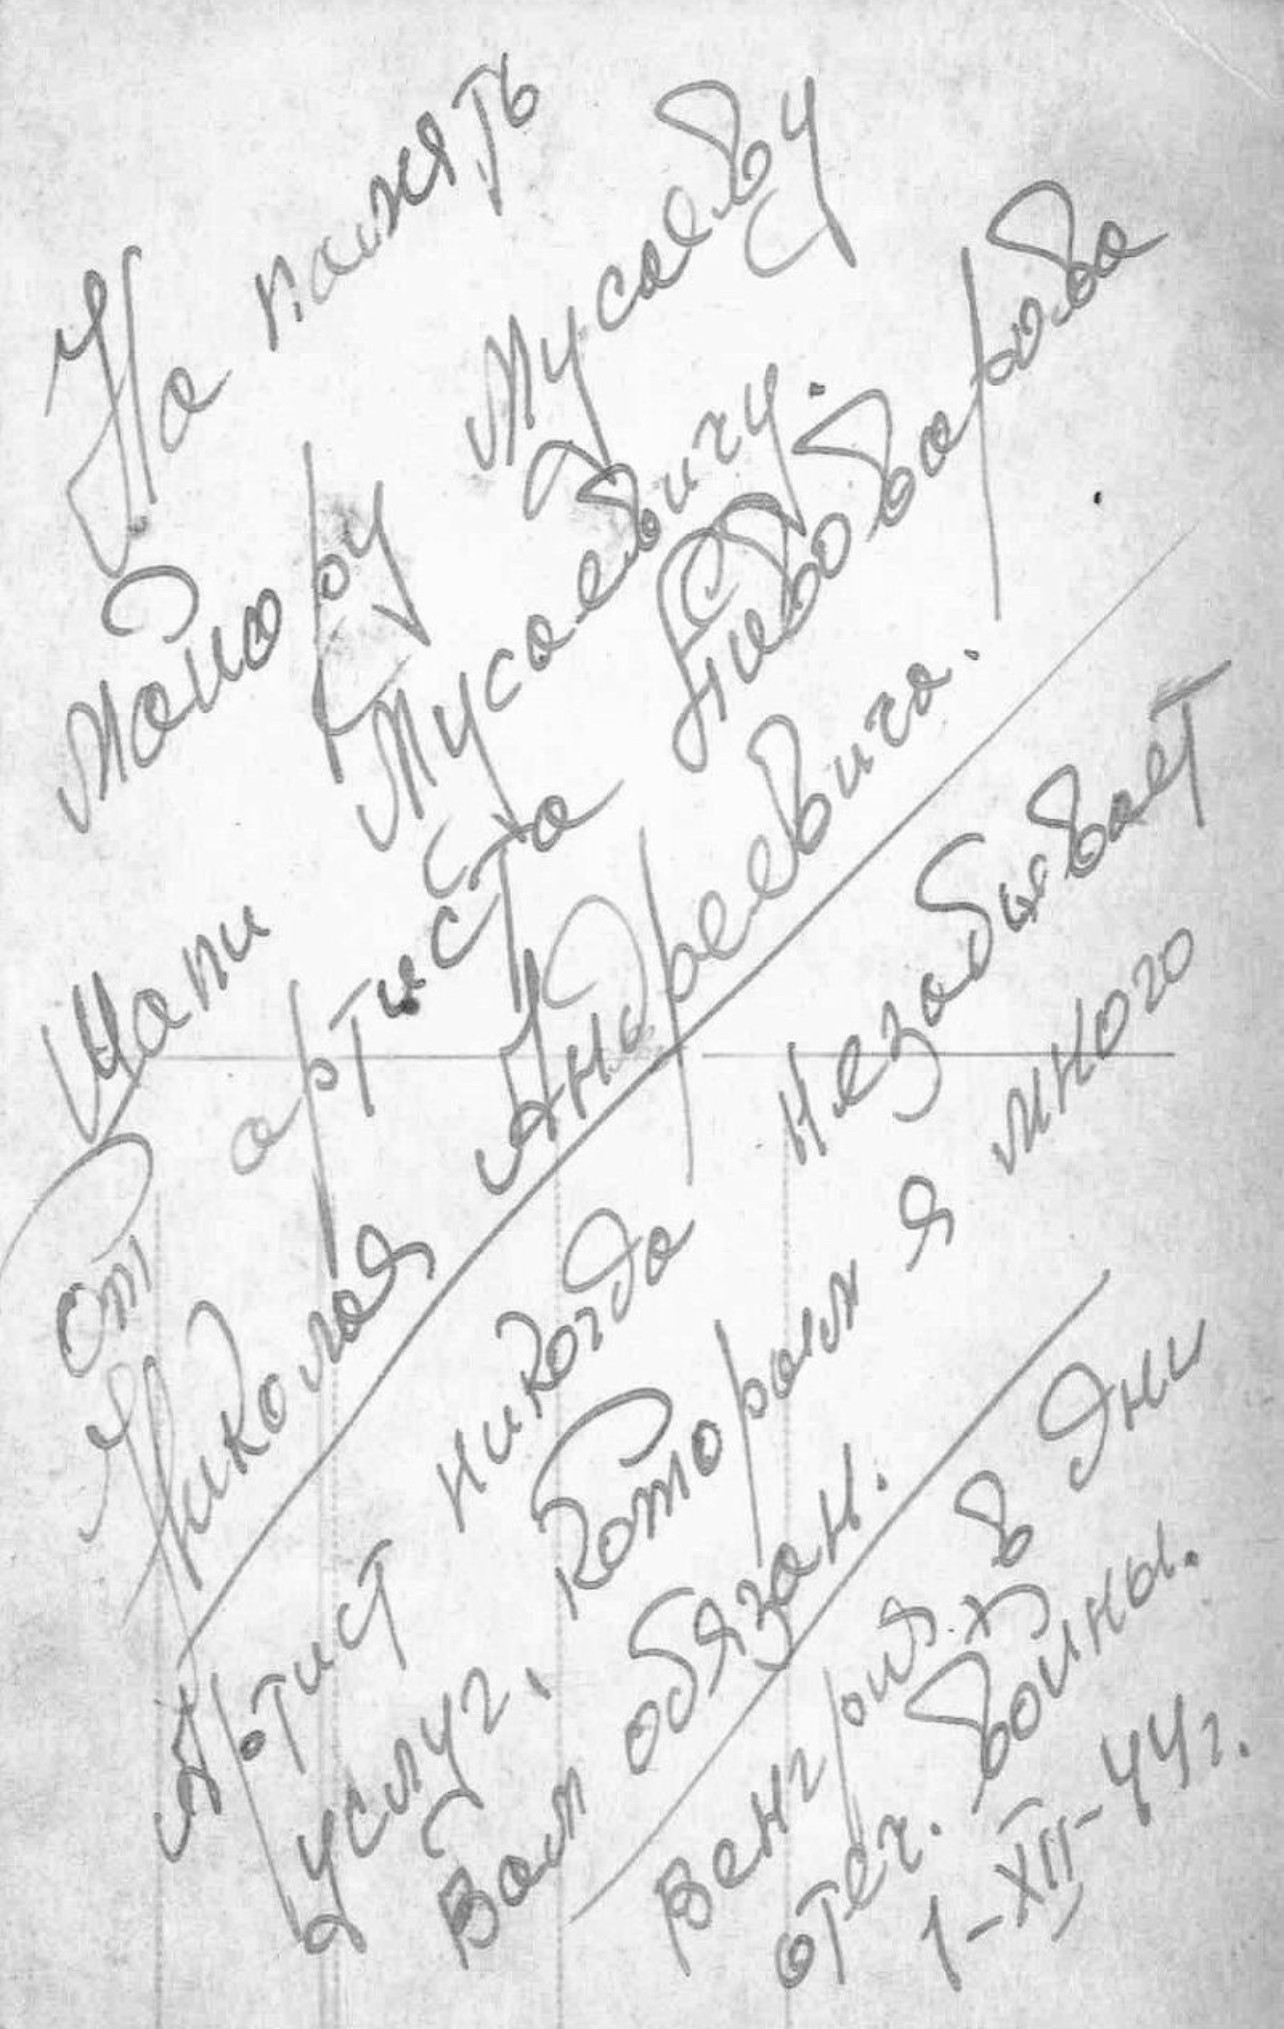 На память
майору Мусаеву
Шапи Мусаевичу.
От артиста Пивоварова
Николая Андреевича.
Артист никогда незабывает
услуг, которым я много
Вам обязан.
Венгрия. в дни
отеч. войны.
1-XII-44г.